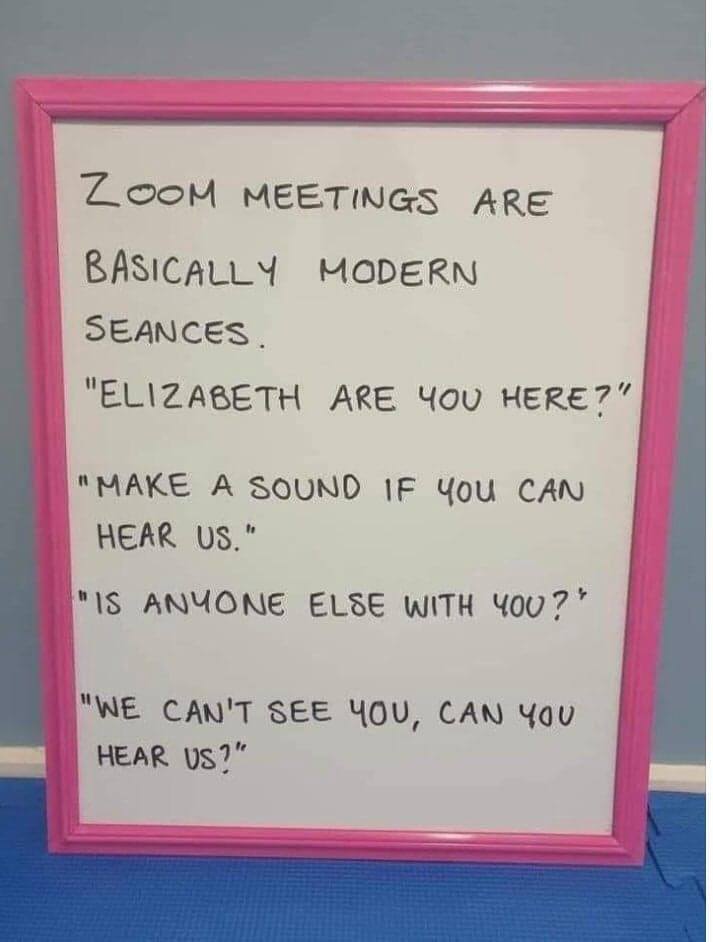 ZOOM MEETINGS ARE
BASICALLY MODERN
SEANCES.
"ELIZABETH ARE YOU HERE?"
"MAKE A SOUND IF YOU CAN
HEAR US."
"IS ANYONE ELSE WITH YOU?"
"WE CAN'T SEE YOU, CAN YOU
HEAR US?"